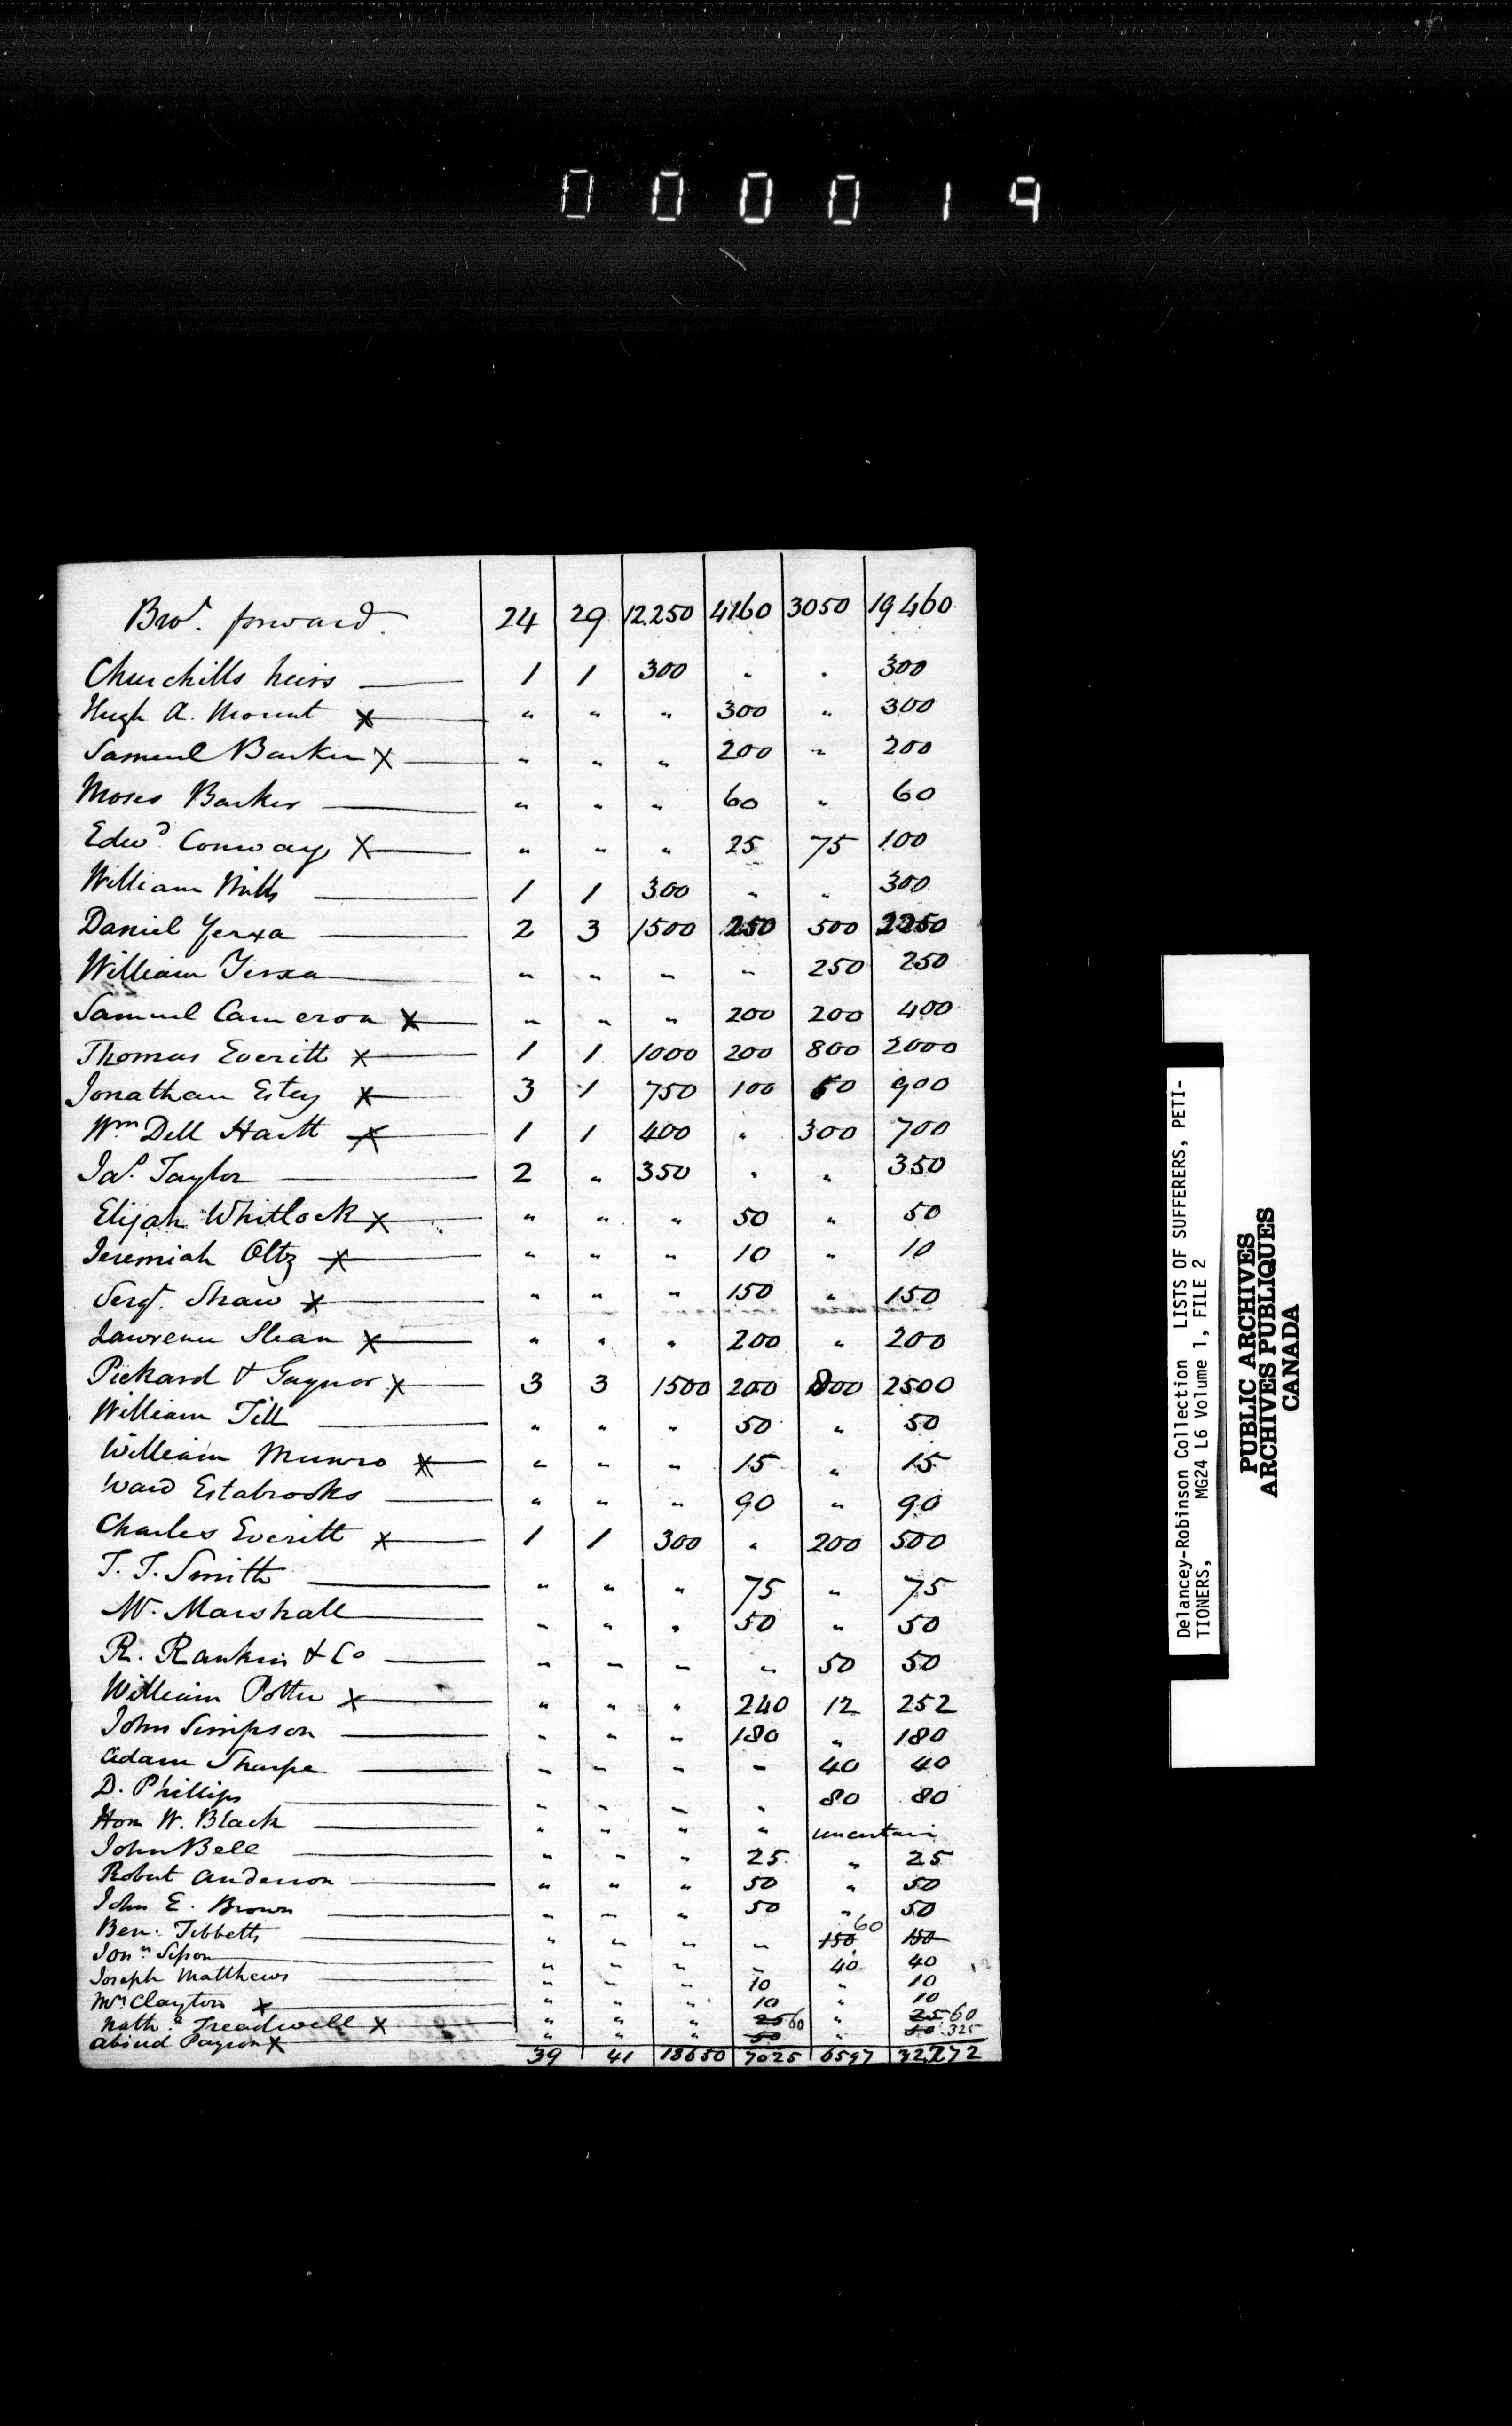 000019
Brod. forward. 24 29 12.250 4160 3050 19460
Churchills heirs 1 1 300 " " 300
Hugh A. Mount X " " " 300 " 300
Samuel Barker X " " " 200 " 200
Moses Barker " " " 60 " 60
Edwd Conway X " " " 25 75 100
William Mills 1 1 300 " " 300
Daniel Yerxa 2 3 1500 250 500 2250
William Yerxa " " " " 250 250
Samuel Cameron X " " " 200 200 400
Thomas Everitt X 1 1 1000 200 800 2000
Jonathan Estey X 3 1 750 100 50 900
Wm Dell Hartt X 1 1 400 " 300 700
Jas. Taylor 2 " 350 " " 350
Elijah Whitlock X " " " 50 " 50
Jeremiah Oltz X " " " 10 " 10
Sergt. Shaw X " " " 150 " 150
Lawrence Slean X " " " 200 " 200
Pickard & Gaynor X 3 3 1500 200 800 2500
William Till " " " 50 " 50
William Munro X " " " 15 " 15
Ward Estabrooks " " " 90 " 90
Charles Everitt X 1 1 300 " 200 500
T. T. Smith " " " 75 " 75
W. Marshall " " " 50 " 50
R. Rankin & Co " " " " 50 50
William Potter X " " " 240 12 252
John Simpson " " " 180 " 180
Adam Sharpe " " " " 40 40
D. Phillips " " " " 80 80
Hon W. Black " " " " uncertain
John Bell " " " 25 " 25
Robert Anderson " " " 50 " 50
John E. Brown " " " 50 " 50
Ben. Tibbetts " " " " 150 60 150
Jonn " " " " 40 40
Joseph Matthews " " " 10 " 10
Mrs Clayton X " " " 10 " 10
Nathl Treadwell X " " " 25 60 " 25 60
Abiud Payson X " " " 50 " 50 325
39 41 18650 7025 6597 32,272
Delancey-Robinson Collection LISTS OF SUFFERERS, PETI-
TIONERS, MG24 L6 Volume 1, FILE 2
PUBLIC ARCHIVES
ARCHIVES PUBLIQUES
CANADA